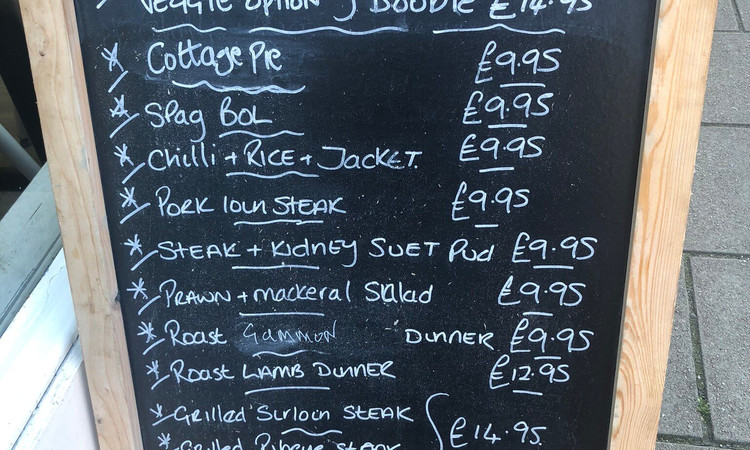 Veggie option } Double £14.95
* Cottage Pie £9.95
* Spag BOL £9.95
* Chilli + RICE + JACKET £9.95
* PORK loin STEAK £9.95
* STEAK + KIDNEY SUET Pud £9.95
* PRAWN + mackeral Salad £9.95
* Roast Gammon DUNNER £9.95
* Roast LAMB DINNER £12.95
* Grilled Surloin STEAK
£14.95
* Grilled Ribeye STEAK